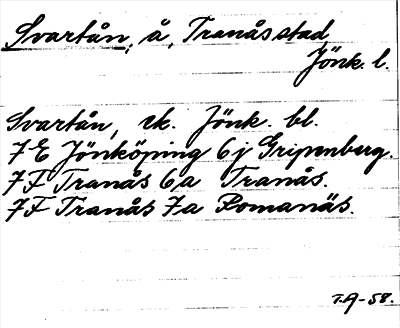 Svartån, å, Tranås stad,
Jönk. l.
Svartån, ek. Jönk. bl.
7 E Jönköping 6j Gripenberg.
7F Tranås 6a Tranås.
7F Tranås 7a Romanäs.
T.A-58.